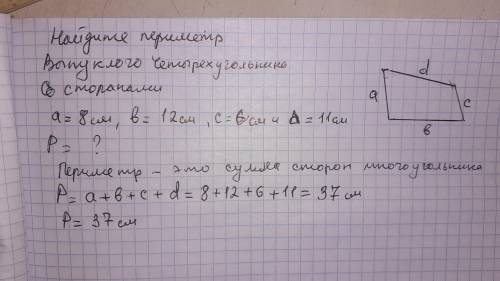 Найдите периметр
Выпуклого четырехугольника
Со сторанами
a = 8 см, в = 12 см, c = 6 см и d = 11 см
P = ?
Периметр - это сумма сторон многоугольника
P = a + в + c + d = 8 + 12 + 6 + 11 = 37 см
P = 37 см
d
a
c
в